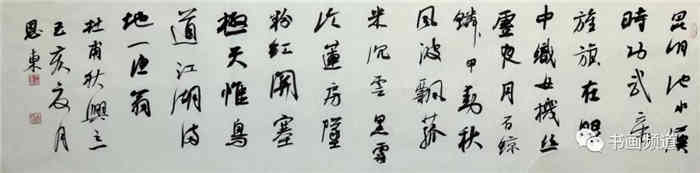 昆明池水漢
時功武帝
旌旗在眼
中織女機絲
虛夜月石鯨
鱗甲動秋
風波飄菰
米沉雲黑露
冷蓮房墜
粉紅關塞
極天惟鳥
道江湖滿
地一漁翁
杜甫秋興之
己亥夏月
恩東
书画频道